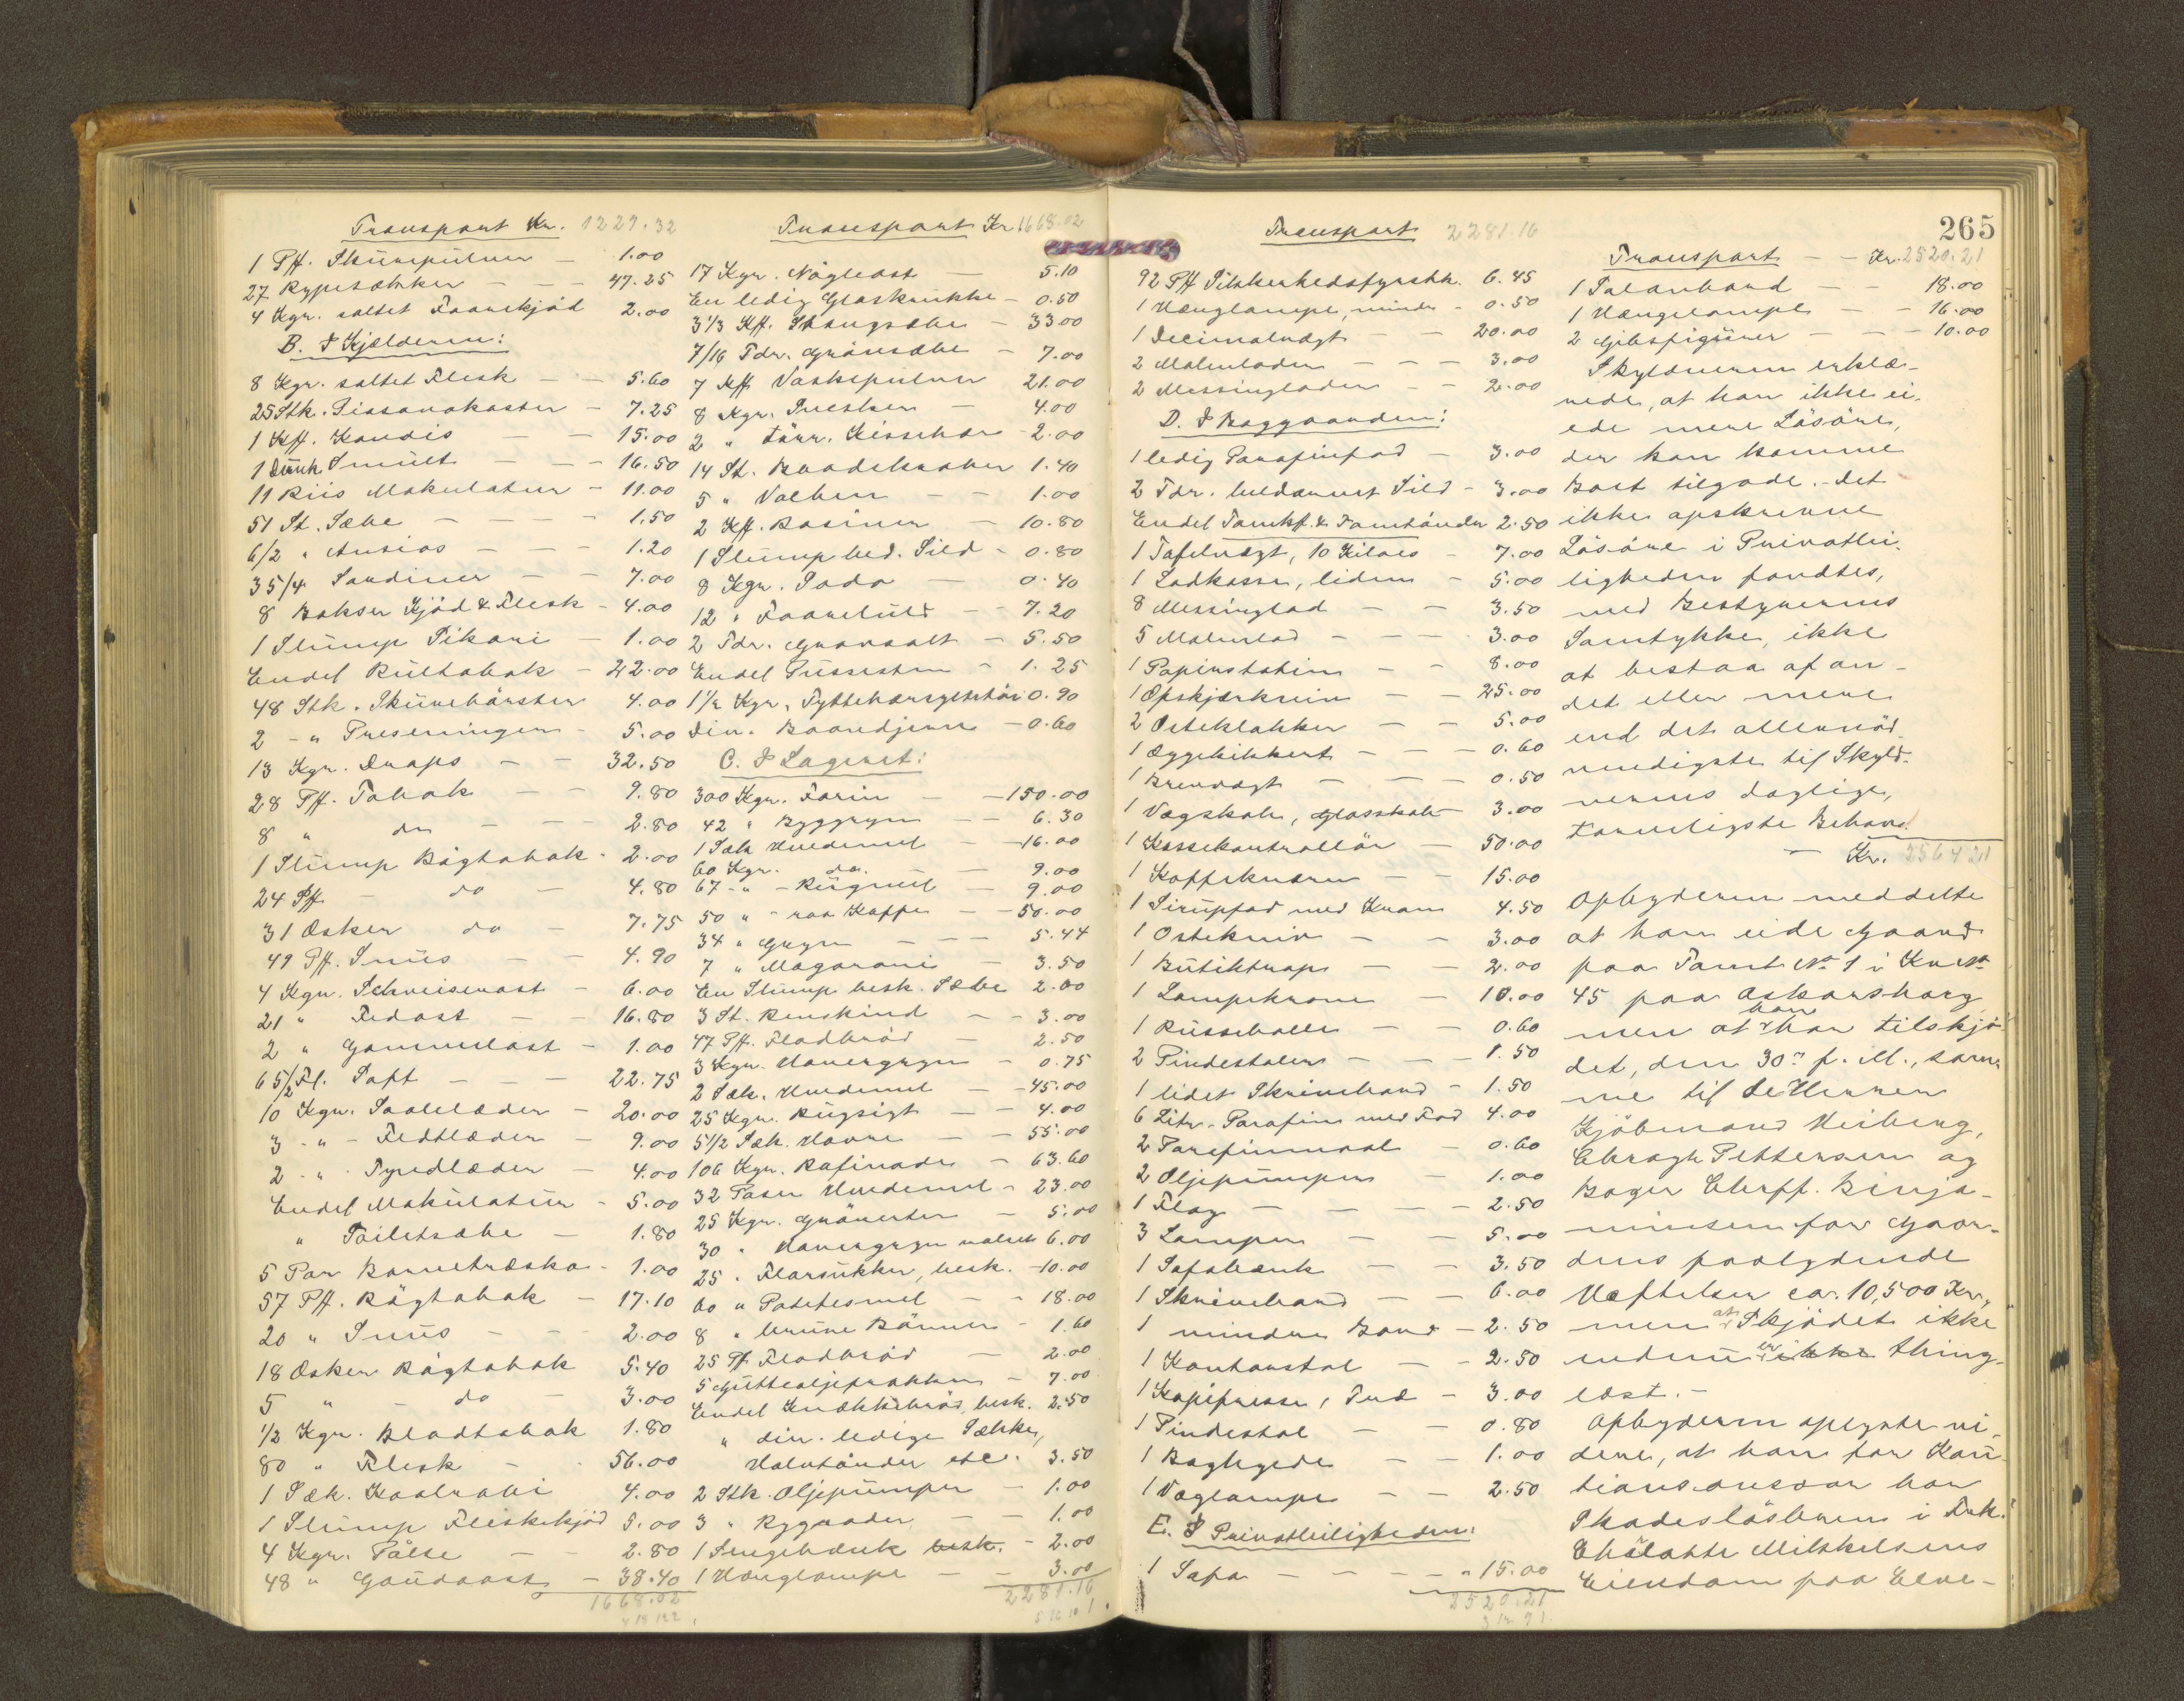 Transport Kr. 1229.32
1 Pff. Skurepulver — 1.00
27 Rypesækker — — 47.25
4 Kgr. saltet Faarekjød 2.00
B. I Kjælderen:
8 Kgr. saltet Flesk — — 5.60
25 Stk. Piasavakoster — 7.25
1 Kff. Kandis — — 15.00
1 Dunk Smult — — 16.50
11 Riis Makulatur — 11.00
51 St. Sæbe — — — 1.50
6/2 " Ansios — — — 1.20
35/4 Sardiner — — 7.00
8 Bokser Kjød & Flesk — 4.00
1 Slump Sikori — 1.00
Endel Rultobak — 42.00
48 Stk. Skurebørster 4.00
2 - " Preseninger — 5.00
13 Kgr. Drops — — 32.50
28 Pff. Tobak — — 9.80
8 " do — — 2.80
1 Slump Røgtobak - 2.00
24 Pff — do — 4.80
31 Æsker do — 7.75
49 Pff. Snus — — 4.90
4 Kgr. Schweiserost — 6.00
21 " Fedost — — 16.80
2 " Gammelost — 1.00
65/2 Fl. Saft — — — 22.75
10 Kgr. Saalelæder — 20.00
3 - " - Fedtlæder — 9.00
2 - " - Pyndlæder — 4.00
Endel Makulatur — 5.00
" Toiletsæbe — 1.80
5 Par Barnetræsko - 1.00
57 Pff. Røgtobak — 17.10
20 " Snus — — 2.00
18 Æsker Røgtobak 5.40
5 " — do — 3.00
1/2 Kgr. Bladtobak 1.80
80 " Flesk — 56.00
1 Sæk. Kaalrabi 4.00
1 Slump Fleskekjød 5.00
4 Kgr. Pølse — — 2.80
48 " Gaudaost — 38.40
1668.02
Transport Kr 1668.02
17 Kgr. Nøgleost — 5.10
En ledig Glaskrukke — 0.50
3 1/3 Kff. Stangsæbe — 33.00
7/16 Tdr. Grønsæbe — 7.00
7 Kff Vaskepulver 21.00
8 Kgr. Svesker 4.00
2 " tørr. Kissebær - 2.00
14 St. Brodskraber 1.40
5 " Valker — — 1.00
2 Kff. Rosiner — 10.80
1 Slump bed. Sild - 0.80
8 Kgr. Soda — 0.40
12 " Faareuld — — 7.20
2 Tdr. Grovsalt — 5.50
Endel Pussesten — 1.25
1 1/2 Kgr. Tyttebærsyltetøi 0.90
Div. Baandjern — 0.60
C. I Lageret:
300 Kgr. Farin — — 150.00
42 " Byggryn — — 6.30
1 Sæk Hvedemel — 16.00
60 Kgr. do. — 9.00
67 - " - Rugmel — 9.00
50 " - raa Kaffe — — 50.00
34 " Gryn — — — 5.44
7 " Magaroni — 3.50
En Slump besk. Sæbe 2.00
3 St. Renskind — — 3.00
47 Pff. Fladbrød — 2.50
3 Kgr. Havregryn — 0.75
2 Sæk. Hvedemel — — 45.00
25 Kgr. Rugsigt — — 4.00
5 1/2 Sæk. Havre — — 55.00
106 Kgr. Rafinade — 63.60
32 Poser Hvedemel — 23.00
25 Kgr. Grønerter — 5.00
30 " Havregryn valset 6.00
25 " Florsukker, besk. — 10.00
60 " Potetesmel — — 18.00
8 " brune Bønner — 1.60
25 Pf Fladbrød — 2.00
5 Gutteoljefrakker — 7.00
Endel Knækkebrød, besk. 2.50
" div. ledige Sække,
Halvtønder etc. 3.50
2 Stk. Oljepumper — 1.00
3 " Rygrader — — 1.00
1 Sengebænk besk. — 2.00
1 Hænglampe — — 3.00
2281.16
Transport 2281.16
92 Pff Sikkerhedsfyrstk. 6.45
1 Hænglampe, mindre — 0.50
1 Decimalvægt — — 20.00
2 Malmlodder — — — 3.00
2 Messinglodder — — 2.00
D. I Baggaarden:
1 ledig Parafinfad — 3.00
2 Tdr. beldaarvet Sild — 3.00
Endel Tomkf. & Tomtønder 2.50
1 Tafelvægt, 10 Kilos — 7.00
1 Lodkasse, liden — 5.00
8 Messinglod — — 3.50
5 Malmlod — — — 3.00
1 Papirstativ — — 8.00
1 Opskjærkniv — — 25.00
2 Osteklokker — — 5.00
1 Æggekikkert — — — 0.60
1 Brevvægt — — — 0.50
1 Vægskab, Glasskab — 3.00
1 Kassekontrollør — 50.00
1 Kaffekværn — — 15.00
1 Sirupfad med Kran 4.50
1 Ostekniv — — 3.00
1 Butiktrap — — 2.00
1 Lampekrone — 10.00
1 Russeballe — — 0.60
2 Pindestoler — — — 1.50
1 lidet Skrivebord — 1.50
6 Litr. Parafin med Fad 4.00
2 Parafinmaal — 0.60
2 Oljepumper — 1.00
1 Flag — — — — 2.50
3 Lamper — — 5.00
1 Sofabænk — — 3.50
1 Skrivebord — — 6.00
1 mindre Bord — 2.50
1 Kontorstol — — 2.50
1 Kopipresse, Træ — 3.00
1 Pindestol — — 0.80
1 Boghyde — — 1.00
1 Væglampe — — 2.50
E. I Privatleiligheden:
1 Sofa — — — — 15.00
2520.21
265
Transport — — Kr. 2520.21
1 Salonbord — — 18.00
1 Hængelampe — — 16.00
2 Gibsfigurer — — — 10.00
Skyldneren erklæ-
rede, at han ikke ei-
ede mere Løsøre,
der kan komme
Boet tilgode. - Det
ikke opskrevne
Løsøre i Privatlei-
ligheden fandtes,
med Bestyrerens
Samtykke, ikke
at bestaa af an-
det eller mere
end det allernød-
vendigste til Skyld-
nerens daglige,
tarveligste Behov.
— Kr. 2564.21
Opbyderen meddelte
at han eide Gaard
paa Tomt No 1 i Kv No
45 paa Oskarsborg
men at han har tilskjø-
det, den 30te f. M., sam-
me til de Herrer
Kjøbmand Heiberg,
Chragh Pettersen og
Bager Chrff. Binja-
minsen for Gaar-
dens paalydende
Hæftelser ca. 10,500 Kr.,
men at Skjødet ikke
endnu er ikke thing-
læst. -
Opbyderen oplyste vi-
dere, at han for Kau-
tionsansvar har
Skadesløsbrev i Frk.
Chalotte Mikkelsens
Eiendom paa Elve-